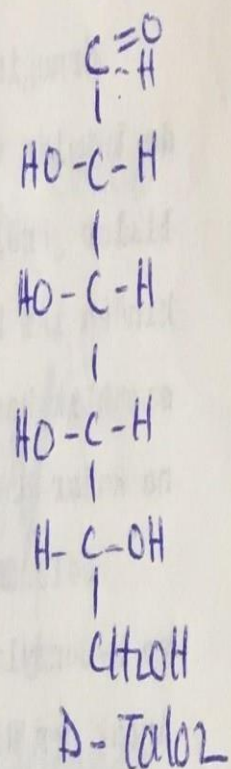 C=O
-H
HO-C-H
HO-C-H
HO-C-H
H-C-OH
CH2OH
D-Taloz